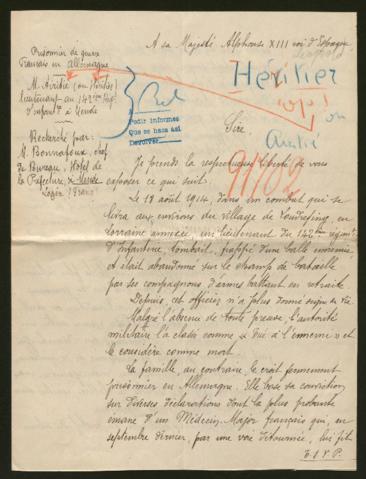 A sa Majesté Alphonse XIII roi d'Espagne
Prisonnier de guerre
Français en Allemagne
M. (ou Héritier)
lieutenant au 142ème Rég.
d'Infant. à Mende
Recherché par:
M. Bonnafoux, chef
de Bureau, Hôtel de
la Préfecture, à Mende
Lozère (France)
Héritier
op!
ou
André
91702
Pedir informes
Que se haca asi
Devolver
Sire,
Je prends la respectueuse liberté de vous
exposer ce qui suit:
Le 18 août 1914, dans un combat qui se
livra aux environs du village de Loudrefing, en
Lorraine annexée, un lieutenant du 142ème régiment
d'Infanterie, tombait, frappé d'une balle ennemie,
et était abandonné sur le champ de bataille
par ses compagnons d'armes battant en retraite
Depuis, cet officier n'a plus donné signe de vie
Malgré l'absence de toute preuve, l'autorité
militaire l'a classé comme « tué à l'ennemi » et
le considère comme mort.
La famille, au contraire, le croit fermement
prisonnier en Allemagne. Elle base sa conviction
sur diverses déclarations dont la plus probante
émane d'un Médecin-Major français qui, en
septembre dernier, par une voie détournée, lui fit
T.S.V.P.